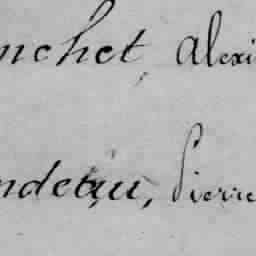 nchet, Alexi
ndeau, Pierre